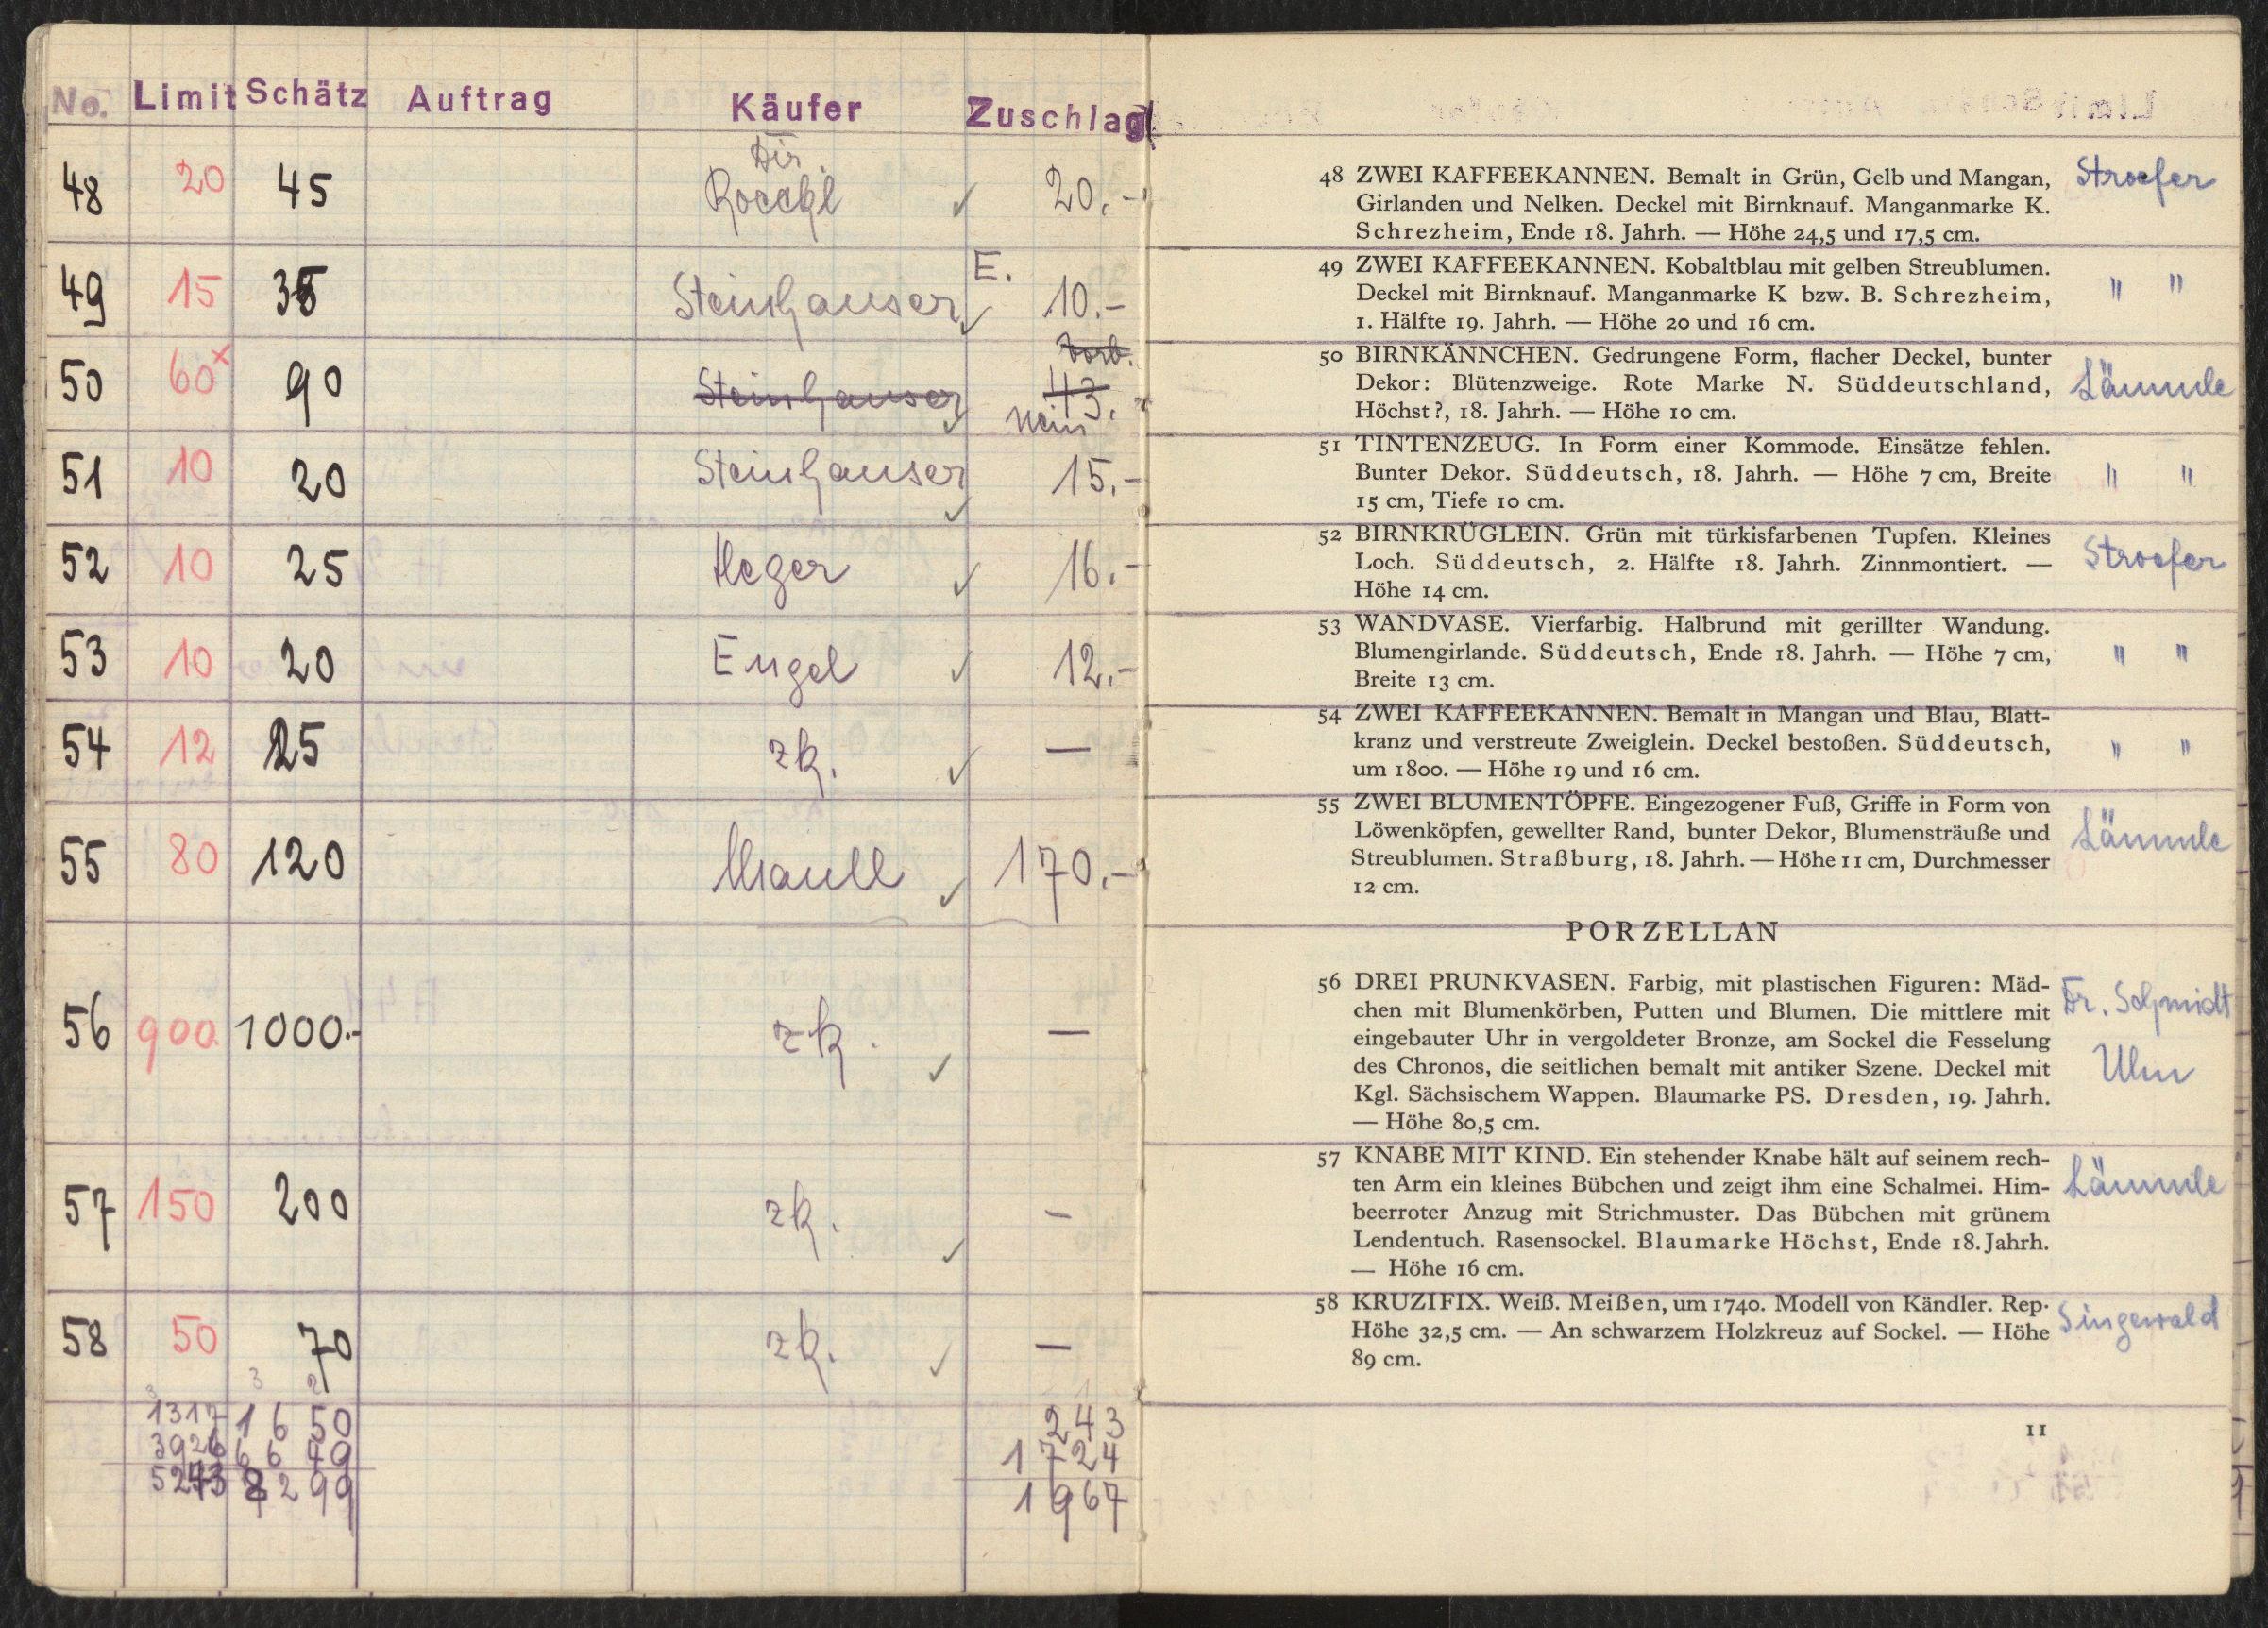 No. Limit Schätz Auftrag Käufer Zuschlag
48 20 45 Dir. Roeckl ✓ 20.-
49 15 35 Steinhauser ✓ E. 10.-
50 60x 90 Steinhauser ✓ Vorb. 43. Nein
51 10 20 Steinhauser ✓ 15.-
52 10 25 Heger ✓ 16.-
53 10 20 Engel ✓ 12.-
54 12 25 zk. ✓ —
55 80 120 Maull ✓ 170.-
56 900. 1000.- zk. ✓ —
57 150 200 zk. ✓ —
58 50 70 zk. ✓ —
3 3 2
1317 1650 243
3926 6649 1724
5243 8299 1967
48 ZWEI KAFFEEKANNEN. Bemalt in Grün, Gelb und Mangan, Stroefer
Girlanden und Nelken. Deckel mit Birnknauf. Manganmarke K.
Schrezheim, Ende 18. Jahrh. — Höhe 24,5 und 17,5 cm.
49 ZWEI KAFFEEKANNEN. Kobaltblau mit gelben Streublumen.
Deckel mit Birnknauf. Manganmarke K bzw. B. Schrezheim, " "
1. Hälfte 19. Jahrh. — Höhe 20 und 16 cm.
50 BIRNKÄNNCHEN. Gedrungene Form, flacher Deckel, bunter
Dekor: Blütenzweige. Rote Marke N. Süddeutschland, Lämmle
Höchst?, 18. Jahrh. — Höhe 10 cm.
51 TINTENZEUG. In Form einer Kommode. Einsätze fehlen.
Bunter Dekor. Süddeutsch, 18. Jahrh. — Höhe 7 cm, Breite " "
15 cm, Tiefe 10 cm.
52 BIRNKRÜGLEIN. Grün mit türkisfarbenen Tupfen. Kleines
Loch. Süddeutsch, 2. Hälfte 18. Jahrh. Zinnmontiert. — Stroefer
Höhe 14 cm.
53 WANDVASE. Vierfarbig. Halbrund mit gerillter Wandung.
Blumengirlande. Süddeutsch, Ende 18. Jahrh. — Höhe 7 cm, " "
Breite 13 cm.
54 ZWEI KAFFEEKANNEN. Bemalt in Mangan und Blau, Blatt-
kranz und verstreute Zweiglein. Deckel bestoßen. Süddeutsch, " "
um 1800. — Höhe 19 und 16 cm.
55 ZWEI BLUMENTÖPFE. Eingezogener Fuß, Griffe in Form von
Löwenköpfen, gewellter Rand, bunter Dekor, Blumensträuße und Lämmle
Streublumen. Straßburg, 18. Jahrh. — Höhe 11 cm, Durchmesser
12 cm.
PORZELLAN
56 DREI PRUNKVASEN. Farbig, mit plastischen Figuren: Mäd-
chen mit Blumenkörben, Putten und Blumen. Die mittlere mit Dr. Schmidt
eingebauter Uhr in vergoldeter Bronze, am Sockel die Fesselung
des Chronos, die seitlichen bemalt mit antiker Szene. Deckel mit Ulm
Kgl. Sächsischem Wappen. Blaumarke PS. Dresden, 19. Jahrh.
— Höhe 80,5 cm.
57 KNABE MIT KIND. Ein stehender Knabe hält auf seinem rech-
ten Arm ein kleines Bübchen und zeigt ihm eine Schalmei. Him- Lämmle
beerroter Anzug mit Strichmuster. Das Bübchen mit grünem
Lendentuch. Rasensockel. Blaumarke Höchst, Ende 18. Jahrh.
— Höhe 16 cm.
58 KRUZIFIX. Weiß. Meißen, um 1740. Modell von Kändler. Rep. Singewald
Höhe 32,5 cm. — An schwarzem Holzkreuz auf Sockel. — Höhe
89 cm.
11